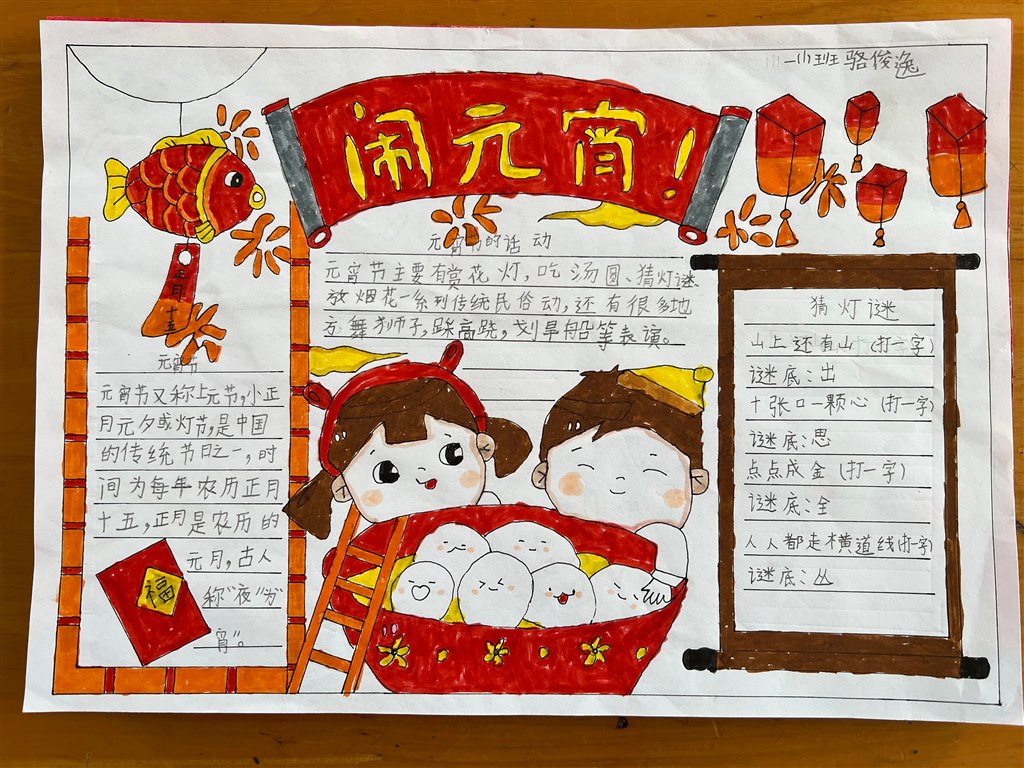 一小班 骆俊逸
闹元宵!
正月十五
元宵节的话动
元宵节主要有赏花灯,吃汤圆、猜灯谜
放烟花一系列传统民俗动,还有很多地
方舞狮子,踩高跷,划旱船等表演。
元宵节
元宵节又称上元节,小正
月元夕或灯节,是中国
的传统节日之一,时
间为每年农历正月
十五,正月是农历的
元月,古人
称"夜"为"
宵"。
福
猜灯谜
山上还有山(打一字)
谜底:出
十张口一颗心(打一字)
谜底:思
点点成金(打一字)
谜底:全
人人都走横道线(打一字)
谜底:丛